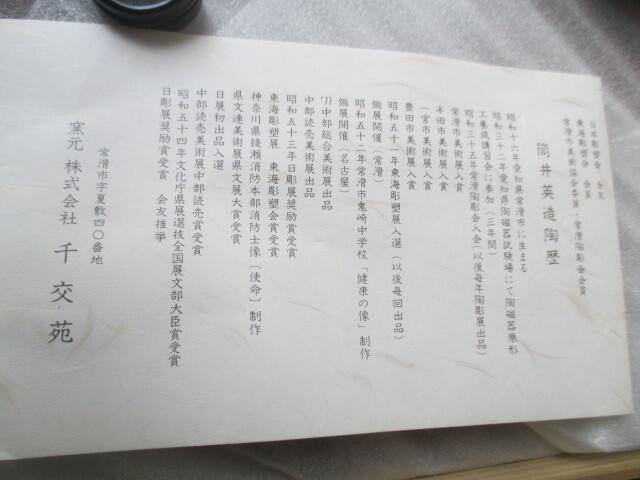 日本彫塑会　会友
東海彫塑会　会員
常滑市美術協会委員・常滑陶彫会会員
筒井英造陶歴
昭和十六年愛知県常滑市に生まる
昭和三十二年愛知県陶磁器試験場にて陶磁器原形
工養成講習会に参加（三年間）
昭和三十五年常滑陶彫会入会（以後毎年陶彫展出品）
常滑市美術展入賞
半田市美術展入賞
一宮市美術展入賞
豊田市美術展入賞
昭和五十一年東海彫塑展入選（以後毎回出品）
個展開催（常滑）
昭和五十二年常滑市鬼崎中学校「健康の像」制作
個展開催（名古屋）
中部総合美術展出品
中部読売美術展出品
昭和五十三年日彫展奨励賞受賞
東海彫塑展　東海彫塑会賞受賞
神奈川県綾瀬消防本部消防士像〔使命〕制作
県文連美術展県文展大賞受賞
日展初出品入選
中部読売美術展中部読売賞受賞
昭和五十四年文化庁県展選抜全国展文部大臣賞受賞
日彫展奨励賞受賞　会友推挙
常滑市字夏敷四〇番地
窯元 株式会社 千交苑